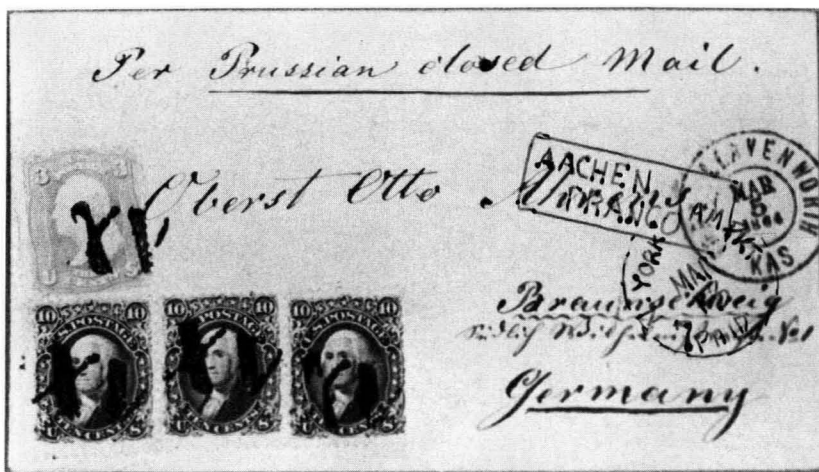 Per Prussian closed Mail.
Oberst Otto
AACHEN
FRANCO
LEAVENWORTH
MAR
5
KAS
YORK
MAR
7
PAID
3 3
Braunschweig
No 1
Germany
10 10
U.S. POSTAGE
TEN CENTS
U S
10 10
U.S. POSTAGE
TEN CENTS
U S
10 10
U.S. POSTAGE
TEN CENTS
U S